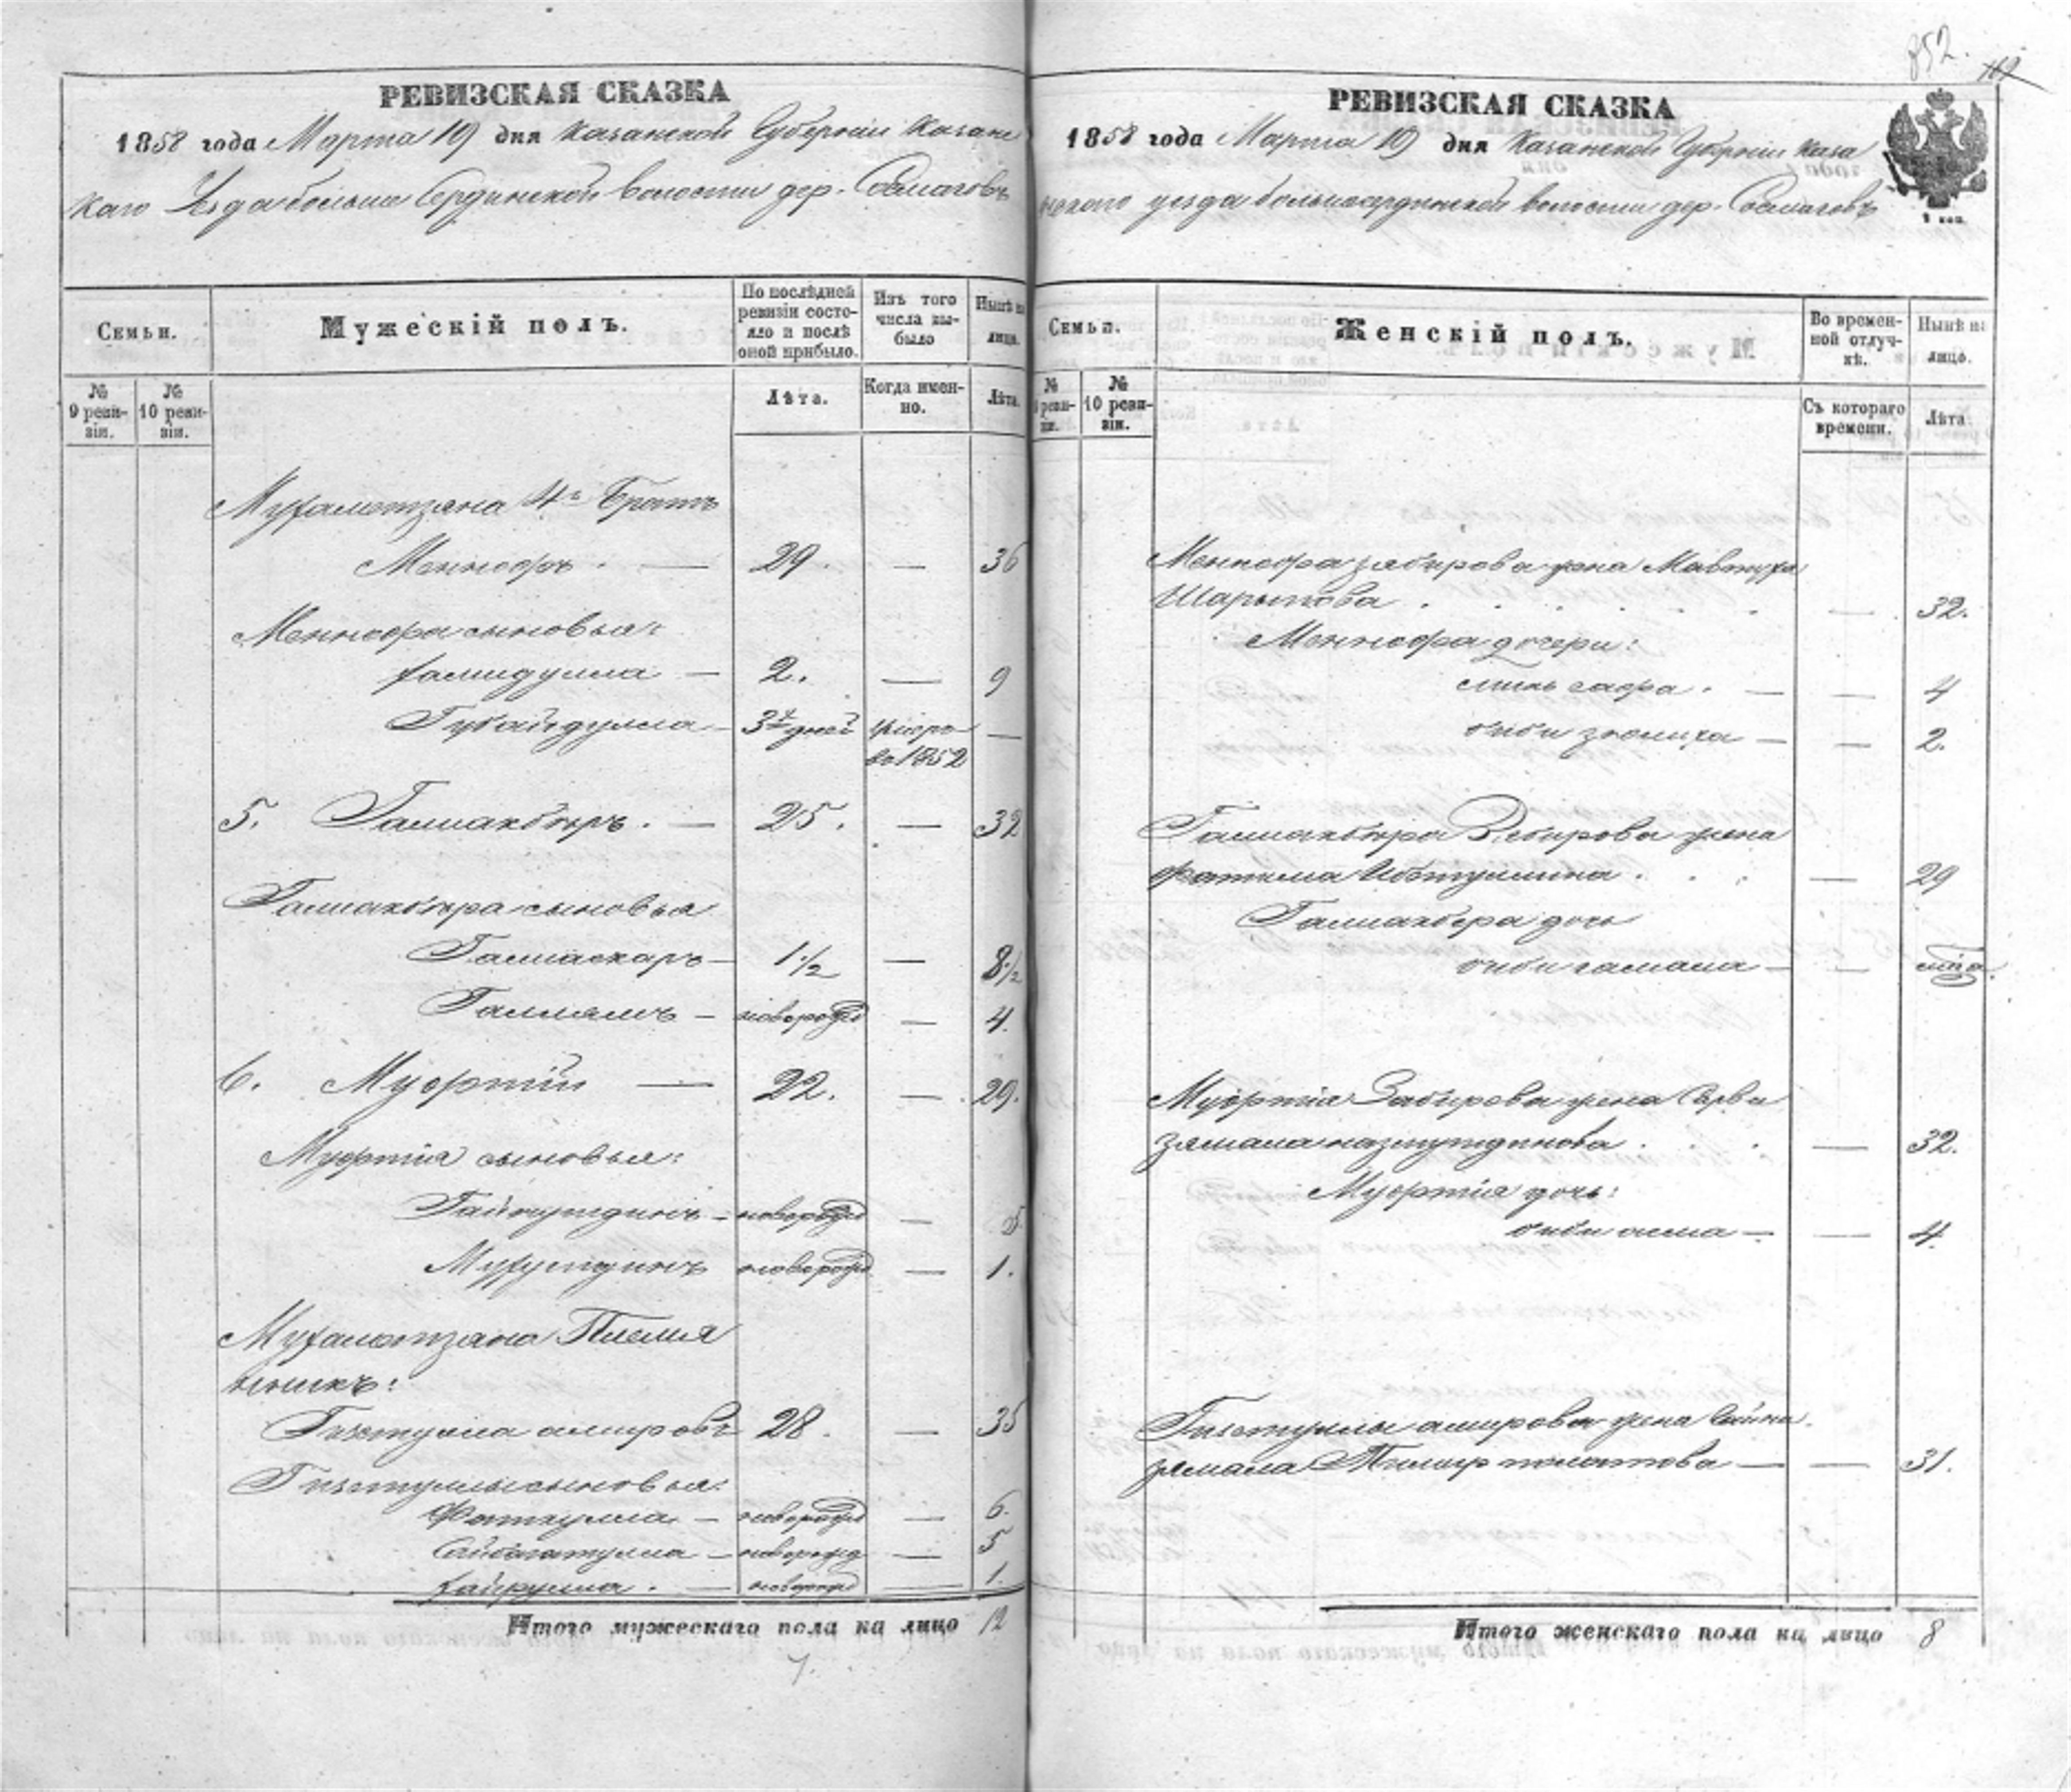 852.
РЕВИЗСКАЯ СКАЗКА
1858 года Марта 19 дня Казанской Губернiи Казанс
каго Уезда больше Сердинской волости дер.
Семьи.
Мужескiй полъ.
По послѣдней ревизiи состояло и послѣ оной прибыло.
Изъ того числа выбыло
Нынѣ на лицо.
№ 9 ревизiи.
№ 10 ревизiи.
Лѣта.
Когда именно.
Лѣта.
Мухаметзяна 4й Братъ
Менноофъ . — 29. — 36
Менноофа сыновья:
Хамидулла — 2. — 9
Губайдулла — 3х дней умеръ —
въ 1852
5. Галиакбѣръ . — 25. — 32
Галиакбѣра сыновья
Галиаскаръ — 1 1/2 — 8 1/2
Галлямъ — новорожд — 4.
6. Муфтiй — 22. — 29.
Муфтiя сыновья:
Гайнутдинъ — новорожд — 5
Мухутдинъ новорожд — 1.
Мухаметзяна Племя
нникъ:
Гизетулла амировъ 28. — 35
Гизетуллы сыновья:
Фаткулла — новорожд — 6.
Сайбагатулла — новорожд — 5
Хайрулла . — новорожд — 1.
Итого мужескаго пола на лицо 12
7.
РЕВИЗСКАЯ СКАЗКА
1858 года Марта 19 дня Казанской Губернiи Каза
нскаго уезда большесердинской волости дер.
1 коп.
Семьи.
Женскiй полъ.
Во временной отлучкѣ.
Нынѣ на лицо.
№ 9 ревизiи.
№ 10 ревизiи.
Съ котораго времени.
Лѣта
Менноофа зябирова жена Мавтуха
Шарыпова . — 32.
Менноофа дочери:
— — 4
биби зюлиха — — 2.
Галиакбѣра Зябирова жена
Фатима . — 29
Галиакбера дочь
биби гамала — —
Муфтiя Забирова жена Сарви
зямала назмутдинова . — 32.
Муфтiя дочь:
биби асма — — 4.
Гизетуллы амирова жена
зямала — — 31.
Итого женскаго пола на лицо 8